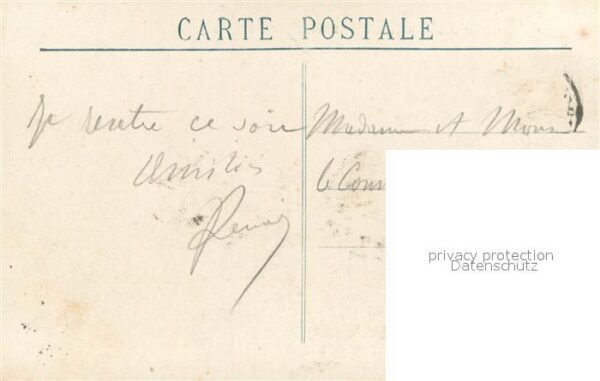 CARTE POSTALE
Je rentre ce soir
Amitiés
Madame et Mons
le Com
privacy protection
Datenschutz